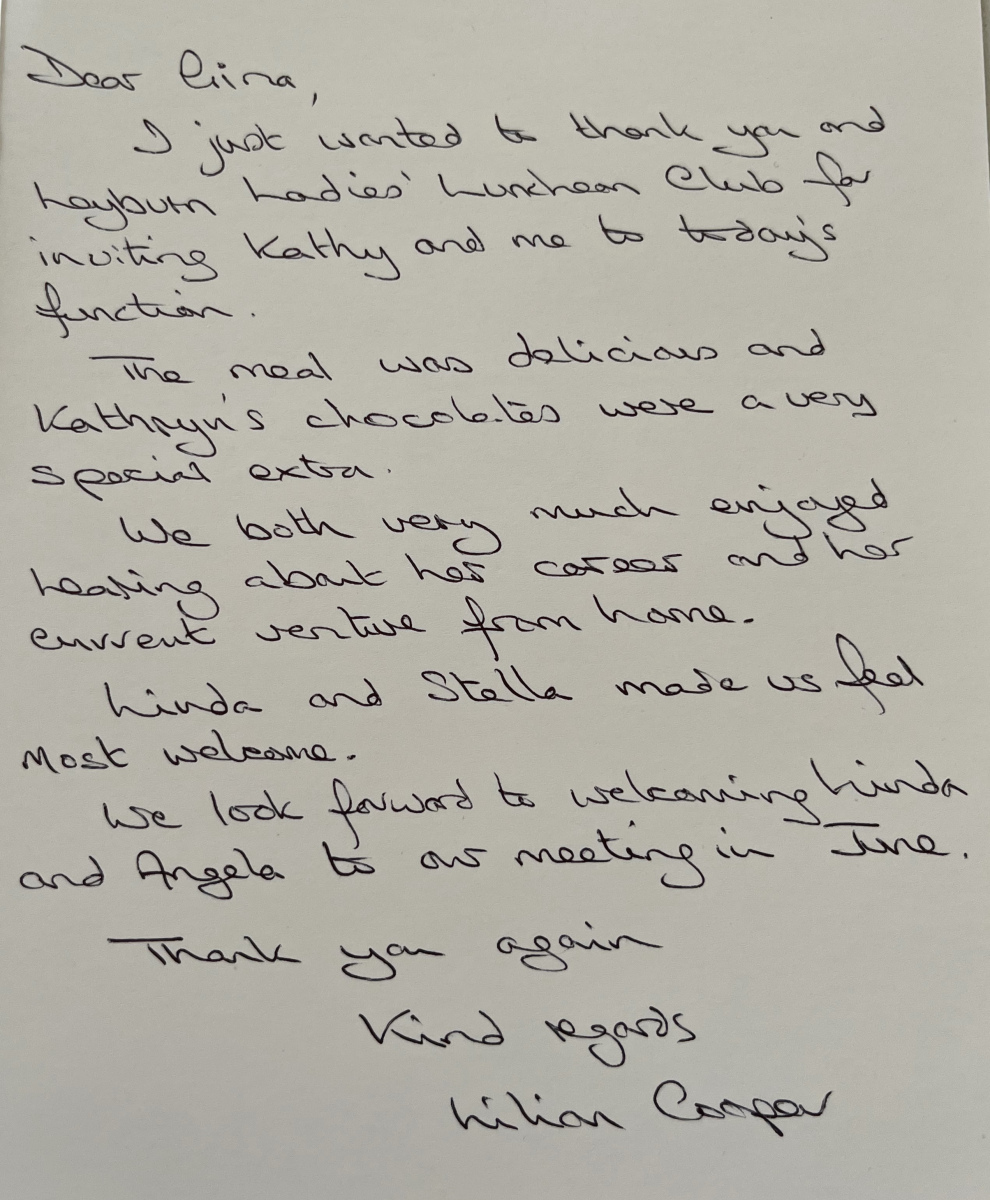 Dear Gina,
I just wanted to thank you and
Leyburn Ladies' Luncheon Club for
inviting Kathy and me to today's
function.
The meal was delicious and
Kathryn's chocolates were a very
special extra.
We both very much enjoyed
hearing about her career and her
current venture from home.
Linda and Stella made us feel
most welcome.
We look forward to welcoming Linda
and Angela to our meeting in June.
Thank you again
Kind regards
Lilian Cooper